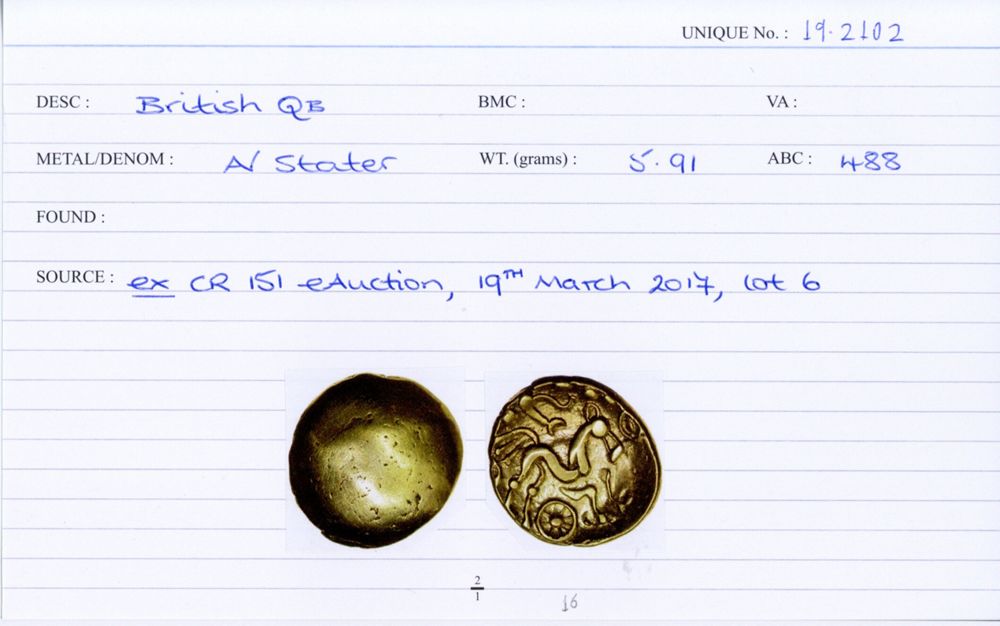 UNIQUE No. : 19.2102
DESC : British QB BMC : VA :
METAL/DENOM : A/ Stater WT. (grams) : 5.91 ABC : 488
FOUND :
SOURCE : ex CR 151 eAuction, 19TH March 2017, lot 6
2
1
16